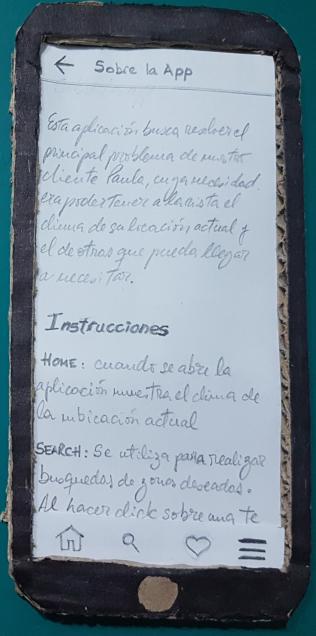 ← Sobre la App
Esta aplicación busca resolver el
principal problema de nuestro
cliente Paula, cuya necesidad
era poder tener a la vista el
clima de su ubicación actual y
el de otros que pueda llegar
a necesitar.
Instrucciones
HOME: cuando se abre la
aplicación muestra el clima de
la ubicación actual
SEARCH: Se utiliza para realizar
busquedas de zonas deseadas.
Al hacer click sobre una te